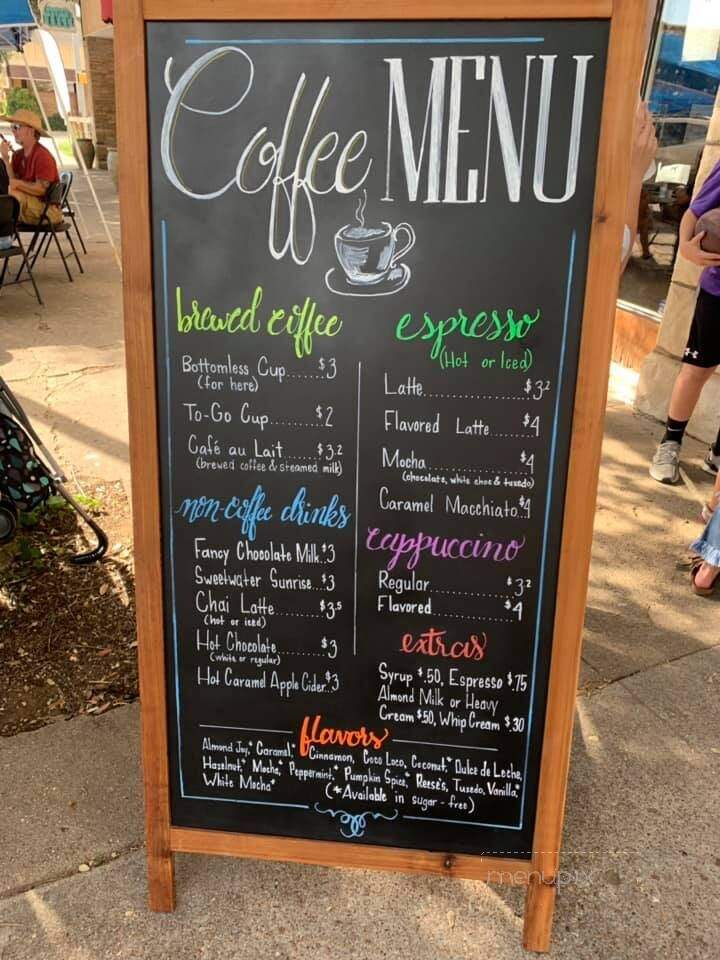 Coffee MENU
brewed coffee
Bottomless Cup......$3
(for here)
To-Go Cup.........$2
Café au Lait......$3.2
(brewed coffee & steamed milk)
non-coffee drinks
Fancy Chocolate Milk..$3
Sweetwater Sunrise...$3
Chai Latte........$3.5
(hot or iced)
Hot Chocolate........$3
(white or regular)
Hot Caramel Apple Cider..$3
espresso
(Hot or Iced)
Latte................$3.2
Flavored Latte.......$4
Mocha................$4
(chocolate, white choc & tuxedo)
Caramel Macchiato..$4
cappuccino
Regular..............$3.2
Flavored.............$4
extras
Syrup $.50, Espresso $.75
Almond Milk or Heavy
Cream $.50, Whip Cream $.30
flavors
Almond Joy,* Caramel,* Cinnamon, Coco Loco, Coconut,* Dulce de Leche,
Hazelnut,* Mocha,* Peppermint,* Pumpkin Spice,* Reese's, Tuxedo, Vanilla,*
White Mocha*
(*Available in sugar-free)